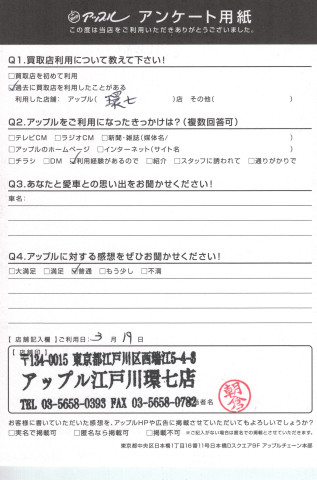 アップル アンケート用紙
この度は当店をご利用いただきありがとうございました。
Q1.買取店利用について教えて下さい!
□買取店を初めて利用
☑過去に買取店を利用したことがある
利用した店舗: アップル( 環七 )店 その他( )
Q2.アップルをご利用になったきっかけは?(複数回答可)
□テレビCM □ラジオCM □新聞・雑誌(媒体名/ )
□アップルのホームページ □インターネット(サイト名 )
□チラシ □DM ☑利用経験があるので □紹介 □スタッフに誘われて □通りがかりで
Q3.あなたと愛車との思い出をお聞かせください!
車名:
Q4.アップルに対する感想をぜひお聞かせください!
□大満足 □満足 ☑普通 □もう少し □不満
【店舗記入欄】ご利用日: 3月19日
【店舗印】
〒134-0015 東京都江戸川区西瑞江5-4-3
アップル江戸川環七店
TEL 03-5658-0393 FAX 03-5658-0782
者名
朝倉
お客様に書いていただいた感想を、アップルHPや広告に掲載させていただいてもよろしいでしょうか?
□実名で掲載可 □匿名なら掲載可 □掲載不可 ※ご記入がない場合は匿名での掲載とさせていただきます。
東京都中央区日本橋1丁目16番11号日本橋Dスクエア9F アップルチェーン本部